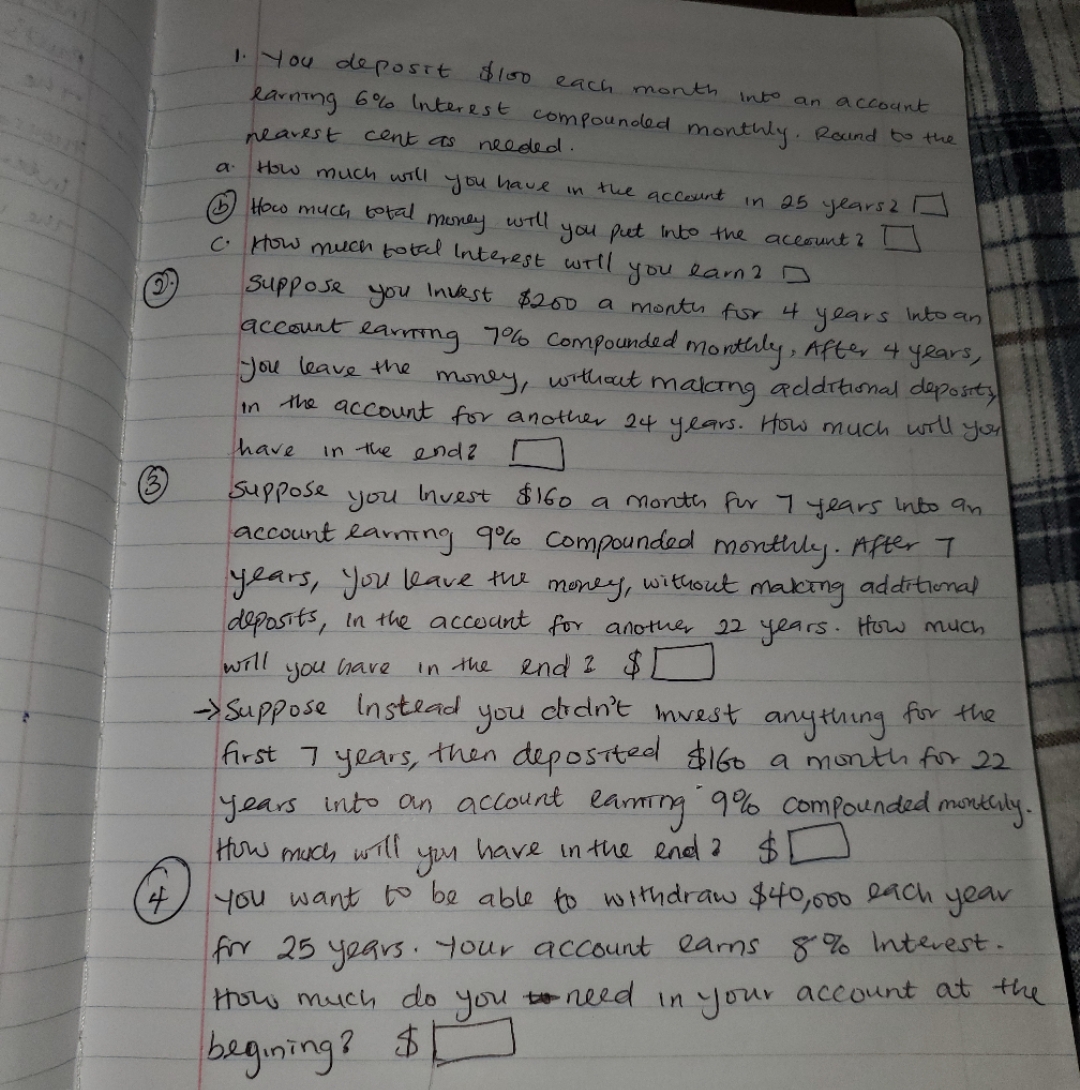 1. You deposit $100 each month into an account
earning 6% Interest compounded monthly. Round to the
nearest cent as needed.
a. How much will you have in the account in 25 years?
b How much total money will you put into the account?
c. How much total Interest will you earn?
2. Suppose you Invest $200 a month for 4 years into an
account earning 7% compounded monthly, After 4 years,
you leave the money, without making additional deposits,
in the account for another 24 years. How much will you
have in the end?
3 Suppose you Invest $160 a month for 7 years into an
account earning 9% compounded monthly. After 7
years, you leave the money, without making additional
deposits, in the account for another 22 years. How much
will you have in the end? $
→ Suppose Instead you didn't invest anything for the
first 7 years, then deposited $160 a month for 22
years into an account earning 9% compounded monthly.
How much will you have in the end? $
4 You want to be able to withdraw $40,000 each year
for 25 years. Your account earns 8% Interest.
How much do you need in your account at the
begining? $